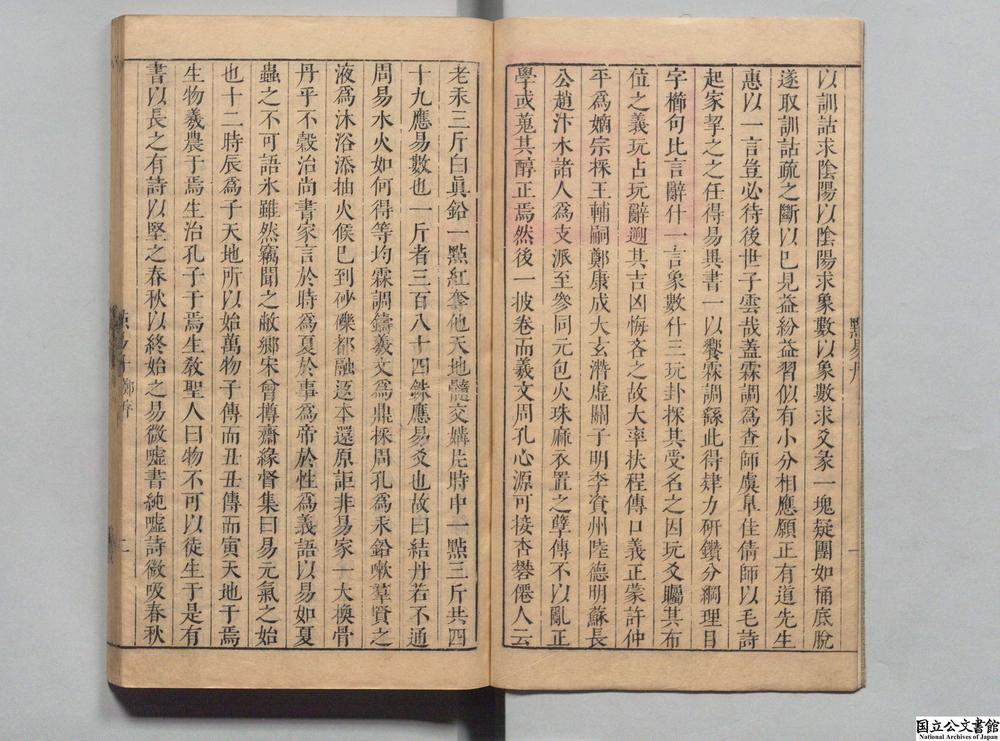 以訓詁求陰陽以陰陽求象數以象數求爻彖一塊疑團如桶底脫
遂取訓詁疏之斷以巳見益紛益習似有小分相應願正有道先生
惠以一言豈必待後世子雲哉蓋霖調爲查師虞皐佳倩師以毛詩
起家挈之之任得易異書一以饗霖調繇此得肆力研鑽分綱理目
字櫛句比言辭什一言象數什三玩卦探其受名之因玩爻矚其布
位之義玩占玩辭遡其吉凶悔吝之故大率扶程傳口義正蒙許仲
平爲嫡宗採王輔嗣鄭康成大玄潛虛關子明李資州陸德明蘇長
公趙汴水諸人爲支派至參同元包火珠麻衣置之孽傳不以亂正
學或蒐其醇正焉然後一披卷而羲文周孔心源可接杏礬僊人云
老汞三斤白眞鉛一點紅奪他天地髓交媾片時中一點三斤共四
十九應易數也一斤者三百八十四銖應易爻也故曰結丹若不通
周易水火如何得等均霖調鑄羲文爲鼎採周孔爲汞鉛嗽羣賢之
液爲沐浴添抽火候巳到砂礫都融返本還原詎非易家一大換骨
丹乎不穀治尚書家言於時爲夏於事爲帝於性爲義語以易如夏
蟲之不可語氷雖然竊聞之敝鄉宋曾摶齋緣督集曰易元氣之始
也十二時辰爲子天地所以始萬物子傳而丑丑傳而寅天地于焉
生物羲農于焉生治孔子于焉生教聖人曰物不可以徒生于是有
書以長之有詩以堅之春秋以終始之易微噓書純噓詩微吸春秋
點易丹
一
二
国立公文書館
National Archives of Japan